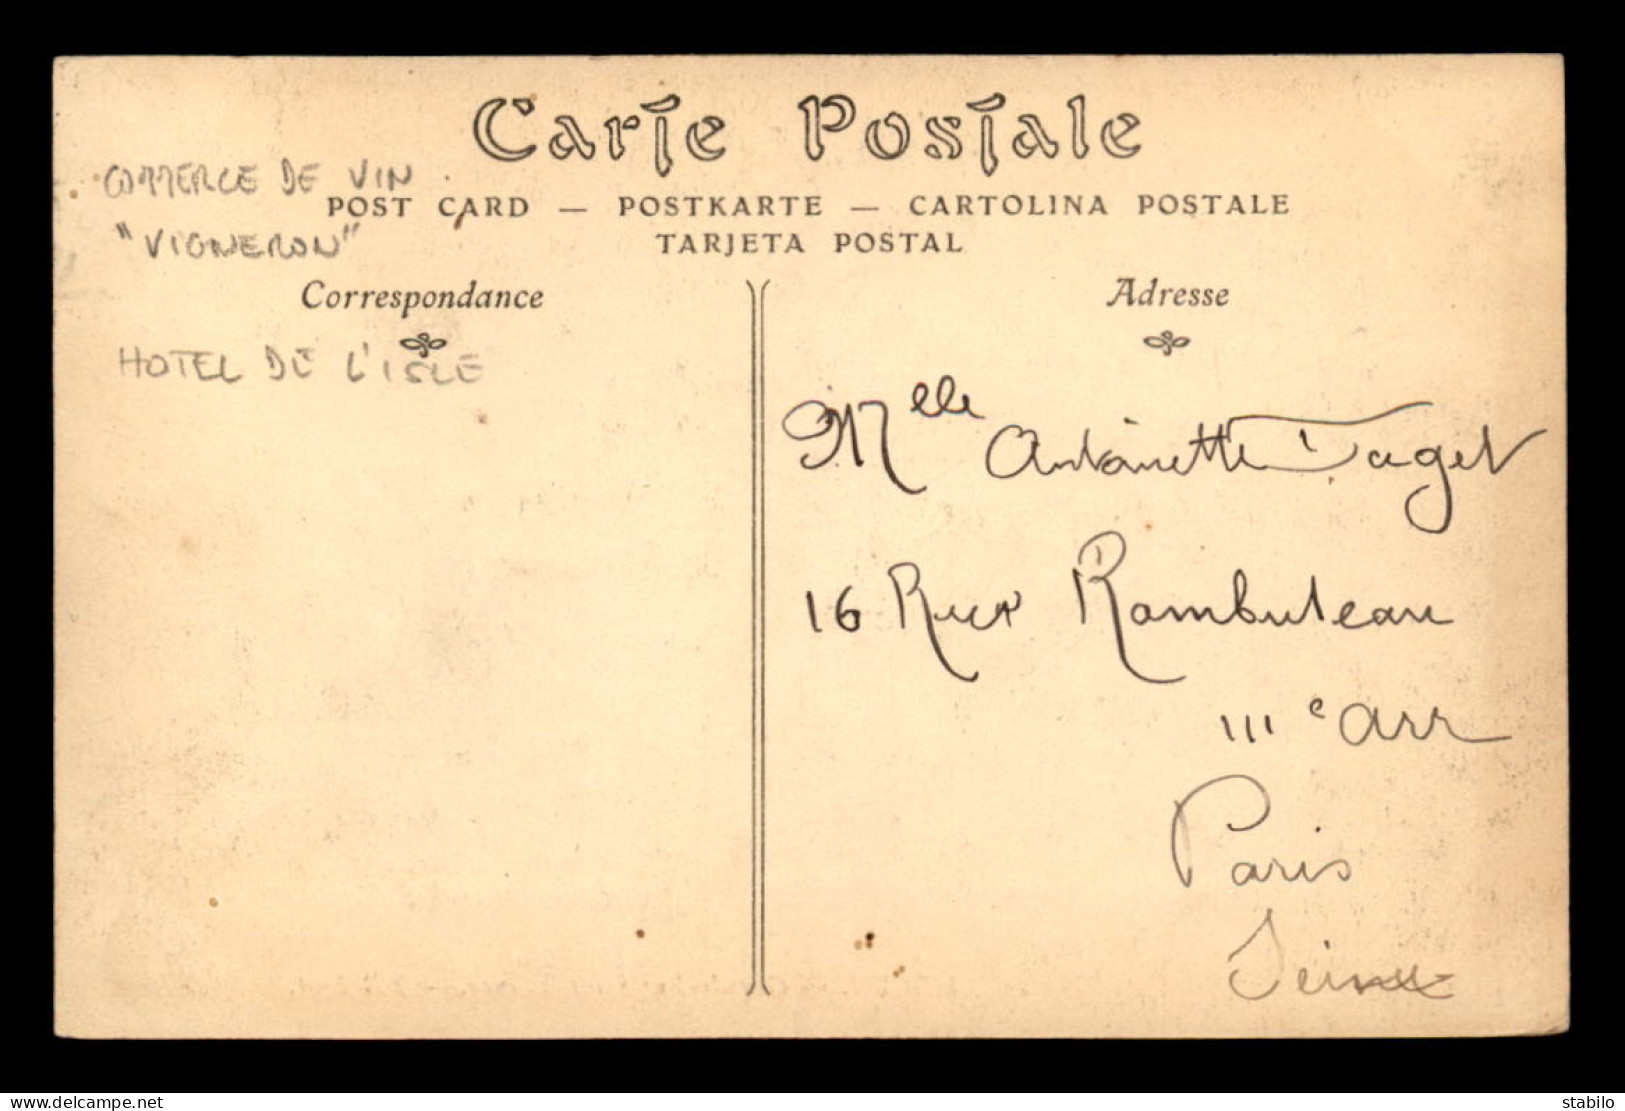 Carte Postale
COMMERCE DE VIN
POST CARD — POSTKARTE — CARTOLINA POSTALE
"VIGNERON"
TARJETA POSTAL
Correspondance
Adresse
HOTEL DE L'ISLE
Mlle Antoinette
16 Rue Rambuteau
IIIe Arr
Paris
Seine
www.delcampe.net
stabilo